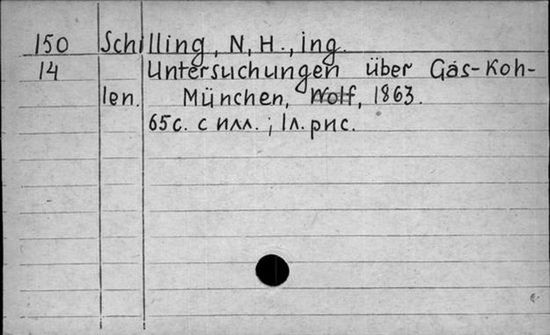 150 Schilling, N, H., ing.
14 Untersuchungen über Gas-Koh-
len. München, Wolf, 1863.
65с. с илл.; 1л. рис.